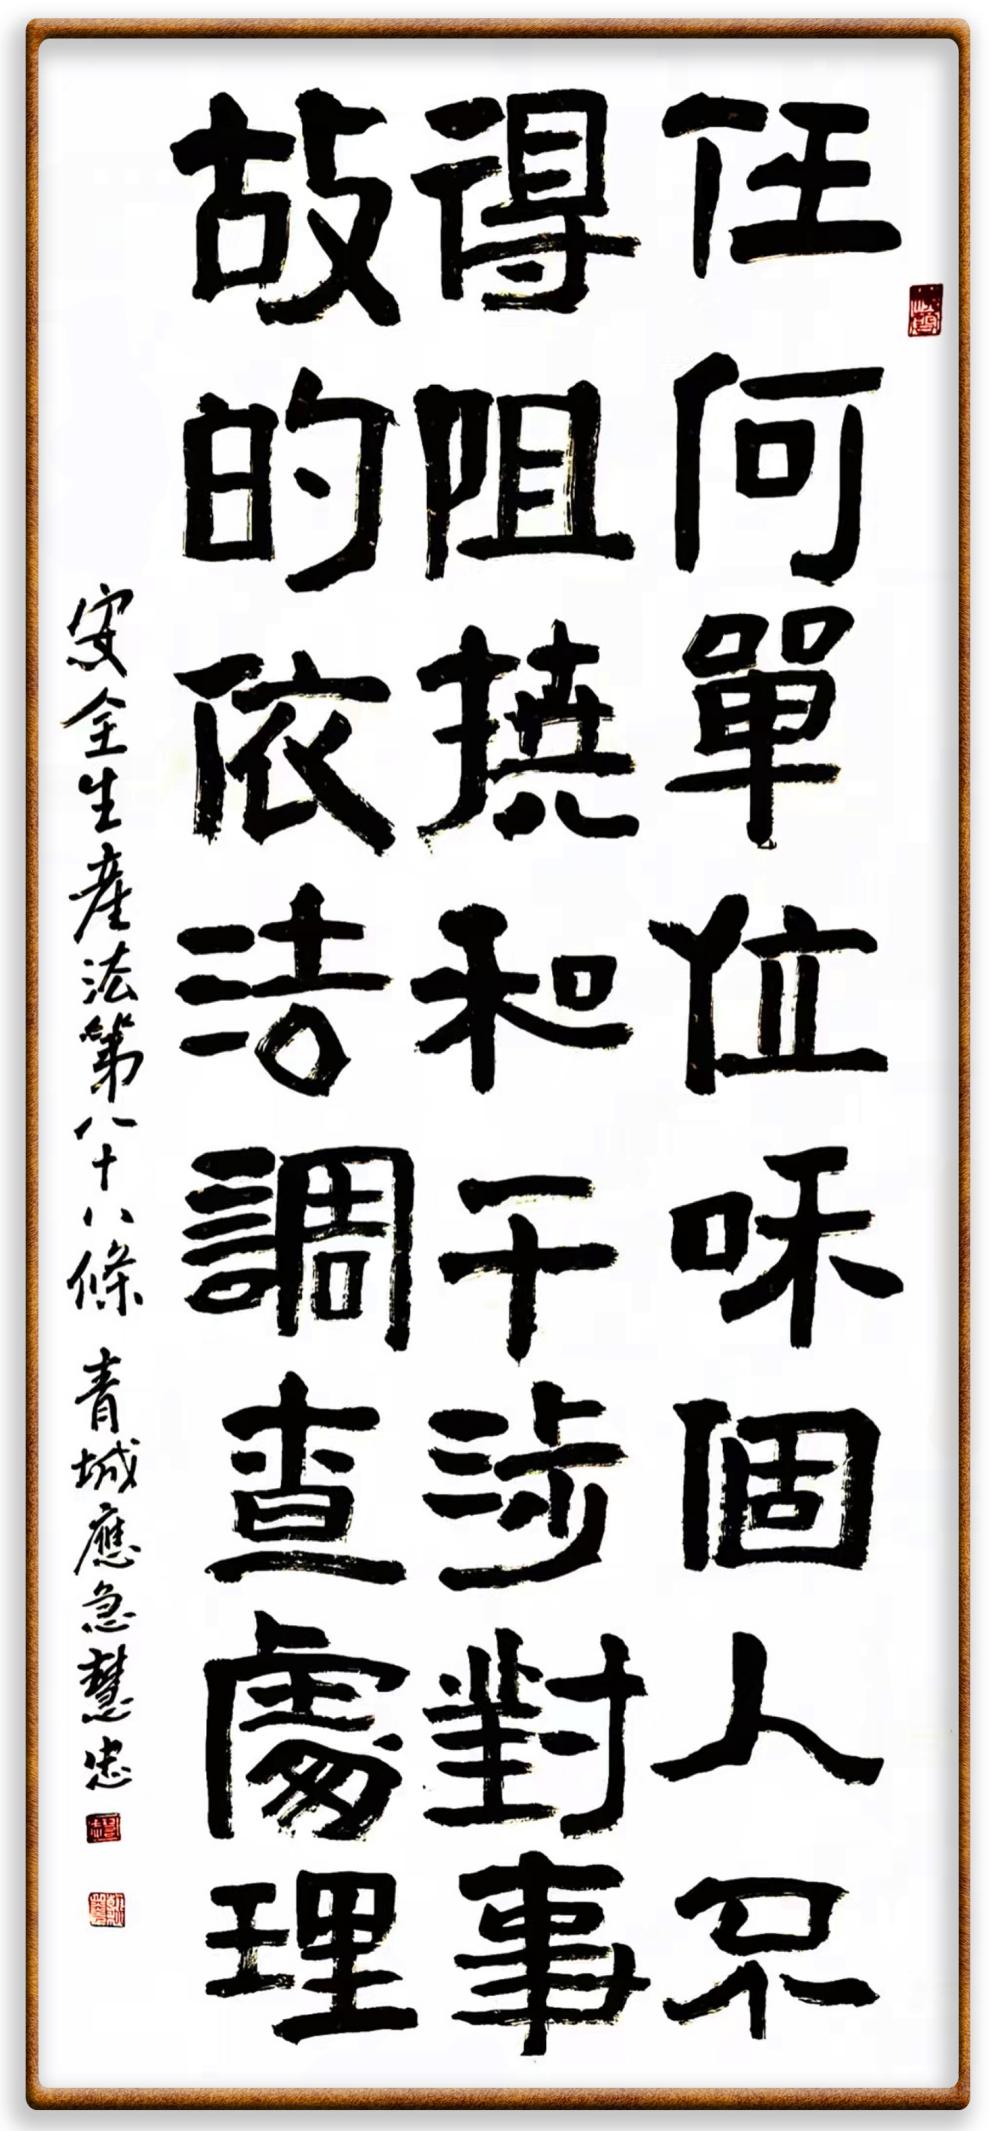 任何單位和個人不
得阻撓和干涉對事
故的依法調查處理
安全生產法第八十八條 青城應急慧忠